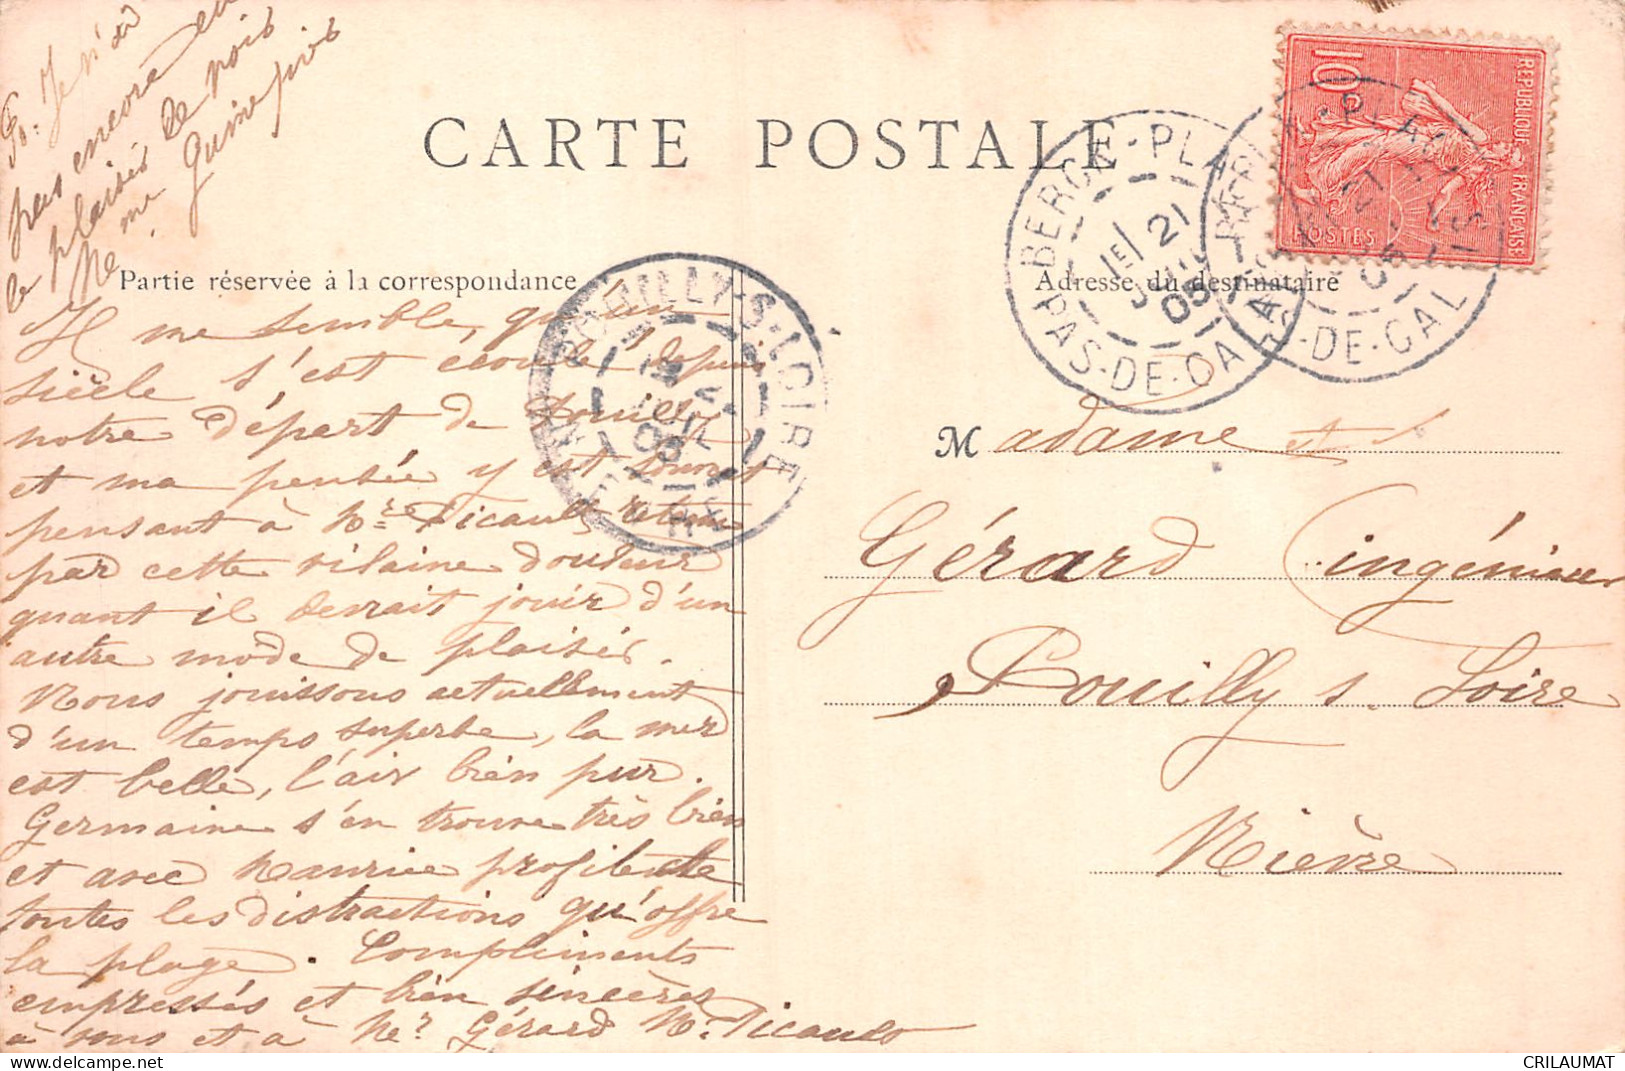 Po: Je n'ai
pas encore eu
le plaisir de voir
Me Guimepied
CARTE POSTALE
Partie réservée à la correspondance
Adresse du destinataire
Il me semble, qu'un
siècle s'est écoulé depuis
notre départ de Pouilly
et ma pensée y est souvent
pensant à Mr Picault retenu
par cette vilaine douleur
quant il devrait jouir d'un
autre mode de plaisir.
Nous jouissons actuellement
d'un temps superbe, la mer
est belle, l'air bien pur.
Germaine s'en trouve très bien
et avec Maurice profite de
toutes les distractions qu'offre
la plage. Compliments
empressés et bien sincères
à vous et à Mr Gérard M. Picault
Madame et
Gérard ingénieur
Pouilly s. Loire
Nièvre
10
REPUBLIQUE FRANÇAISE
POSTES
BERCK-PLAGE
1E/ 21
JUIL
05
PAS-DE-CALAIS
BERCK-PLAGE
21
05
PAS-DE-CALAIS
POUILLY-S-LOIRE
JUIL
05
NIEVRE
CRILAUMAT